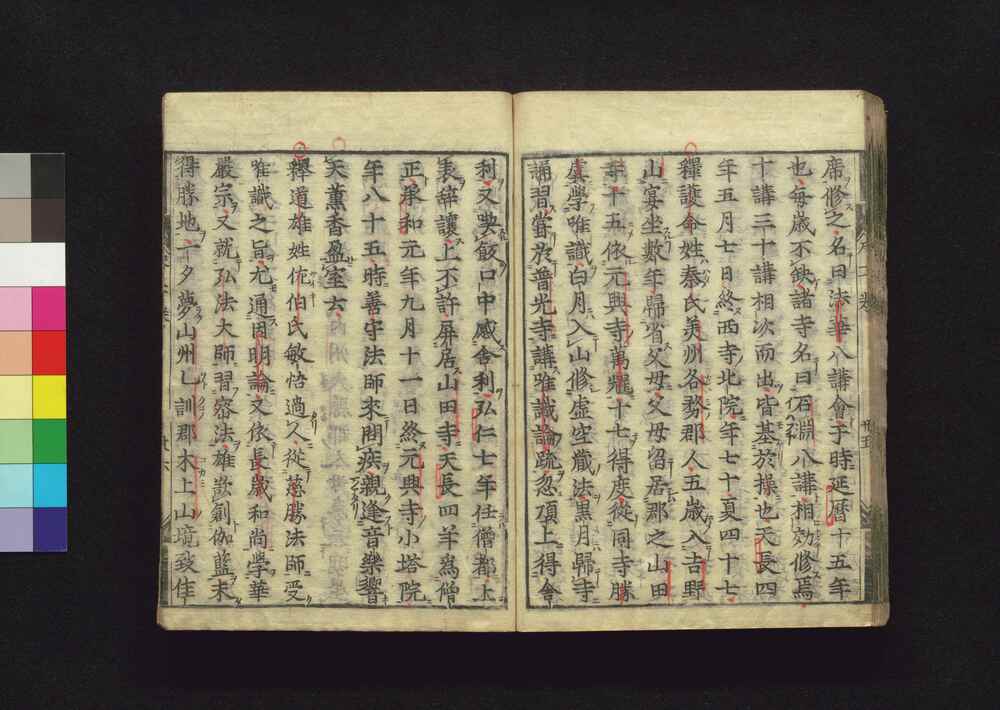 席修之名曰法華八講會于時延曆十五年
也每歲不缺諸寺名曰石淵八講相効修焉
十講三十講相次而出皆基於操也天長四
年五月七日終西寺北院年七十夏四十七
釋護命姓秦氏美州各務郡人五歲入吉野
山宴坐數年歸省父母父母留居郡之山田
年十五依元興寺萬耀十七得度從同寺勝
虞學唯識白月入山修虛空藏法黑月歸寺
誦習嘗於普光寺講唯識論疏忽頂上得舍
利又喫飯口中感舍利弘仁七年任僧都上
表辭讓上不許屏居山田寺天長四年爲僧
正承和元年九月十一日終元興寺小塔院
年八十五時善守法師來問疾親逢音樂響
天薰香盈室云
釋道雄姓佐伯氏敏悟過人從慈勝法師受
唯識之旨尤通因明論又依長歲和尚學華
嚴宗又就弘法大師習密法雄欲創伽藍未
得勝地一夕夢山州乙訓郡木上山境致佳